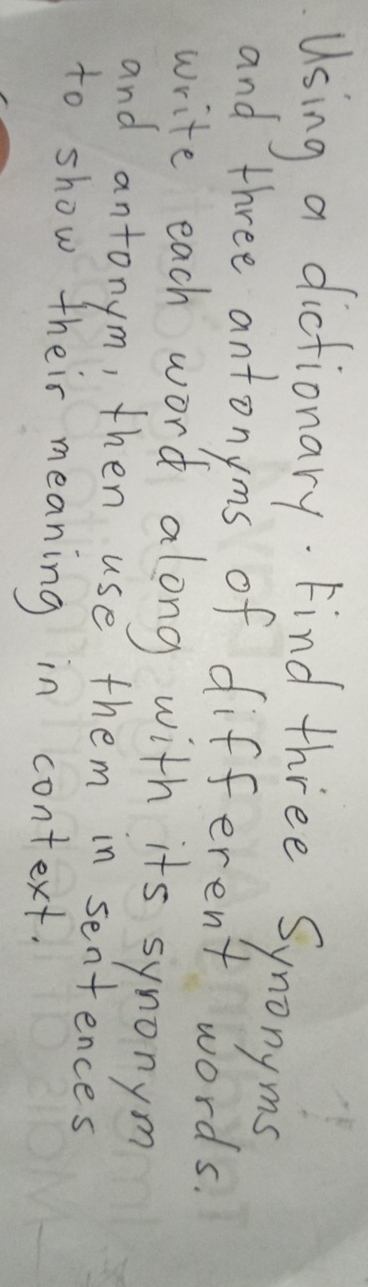 Using a dictionary. Find three Synonyms
and three antonyms of different words.
write each word along with its synonym
and antonym, then use them in sentences
to show their meaning in context.